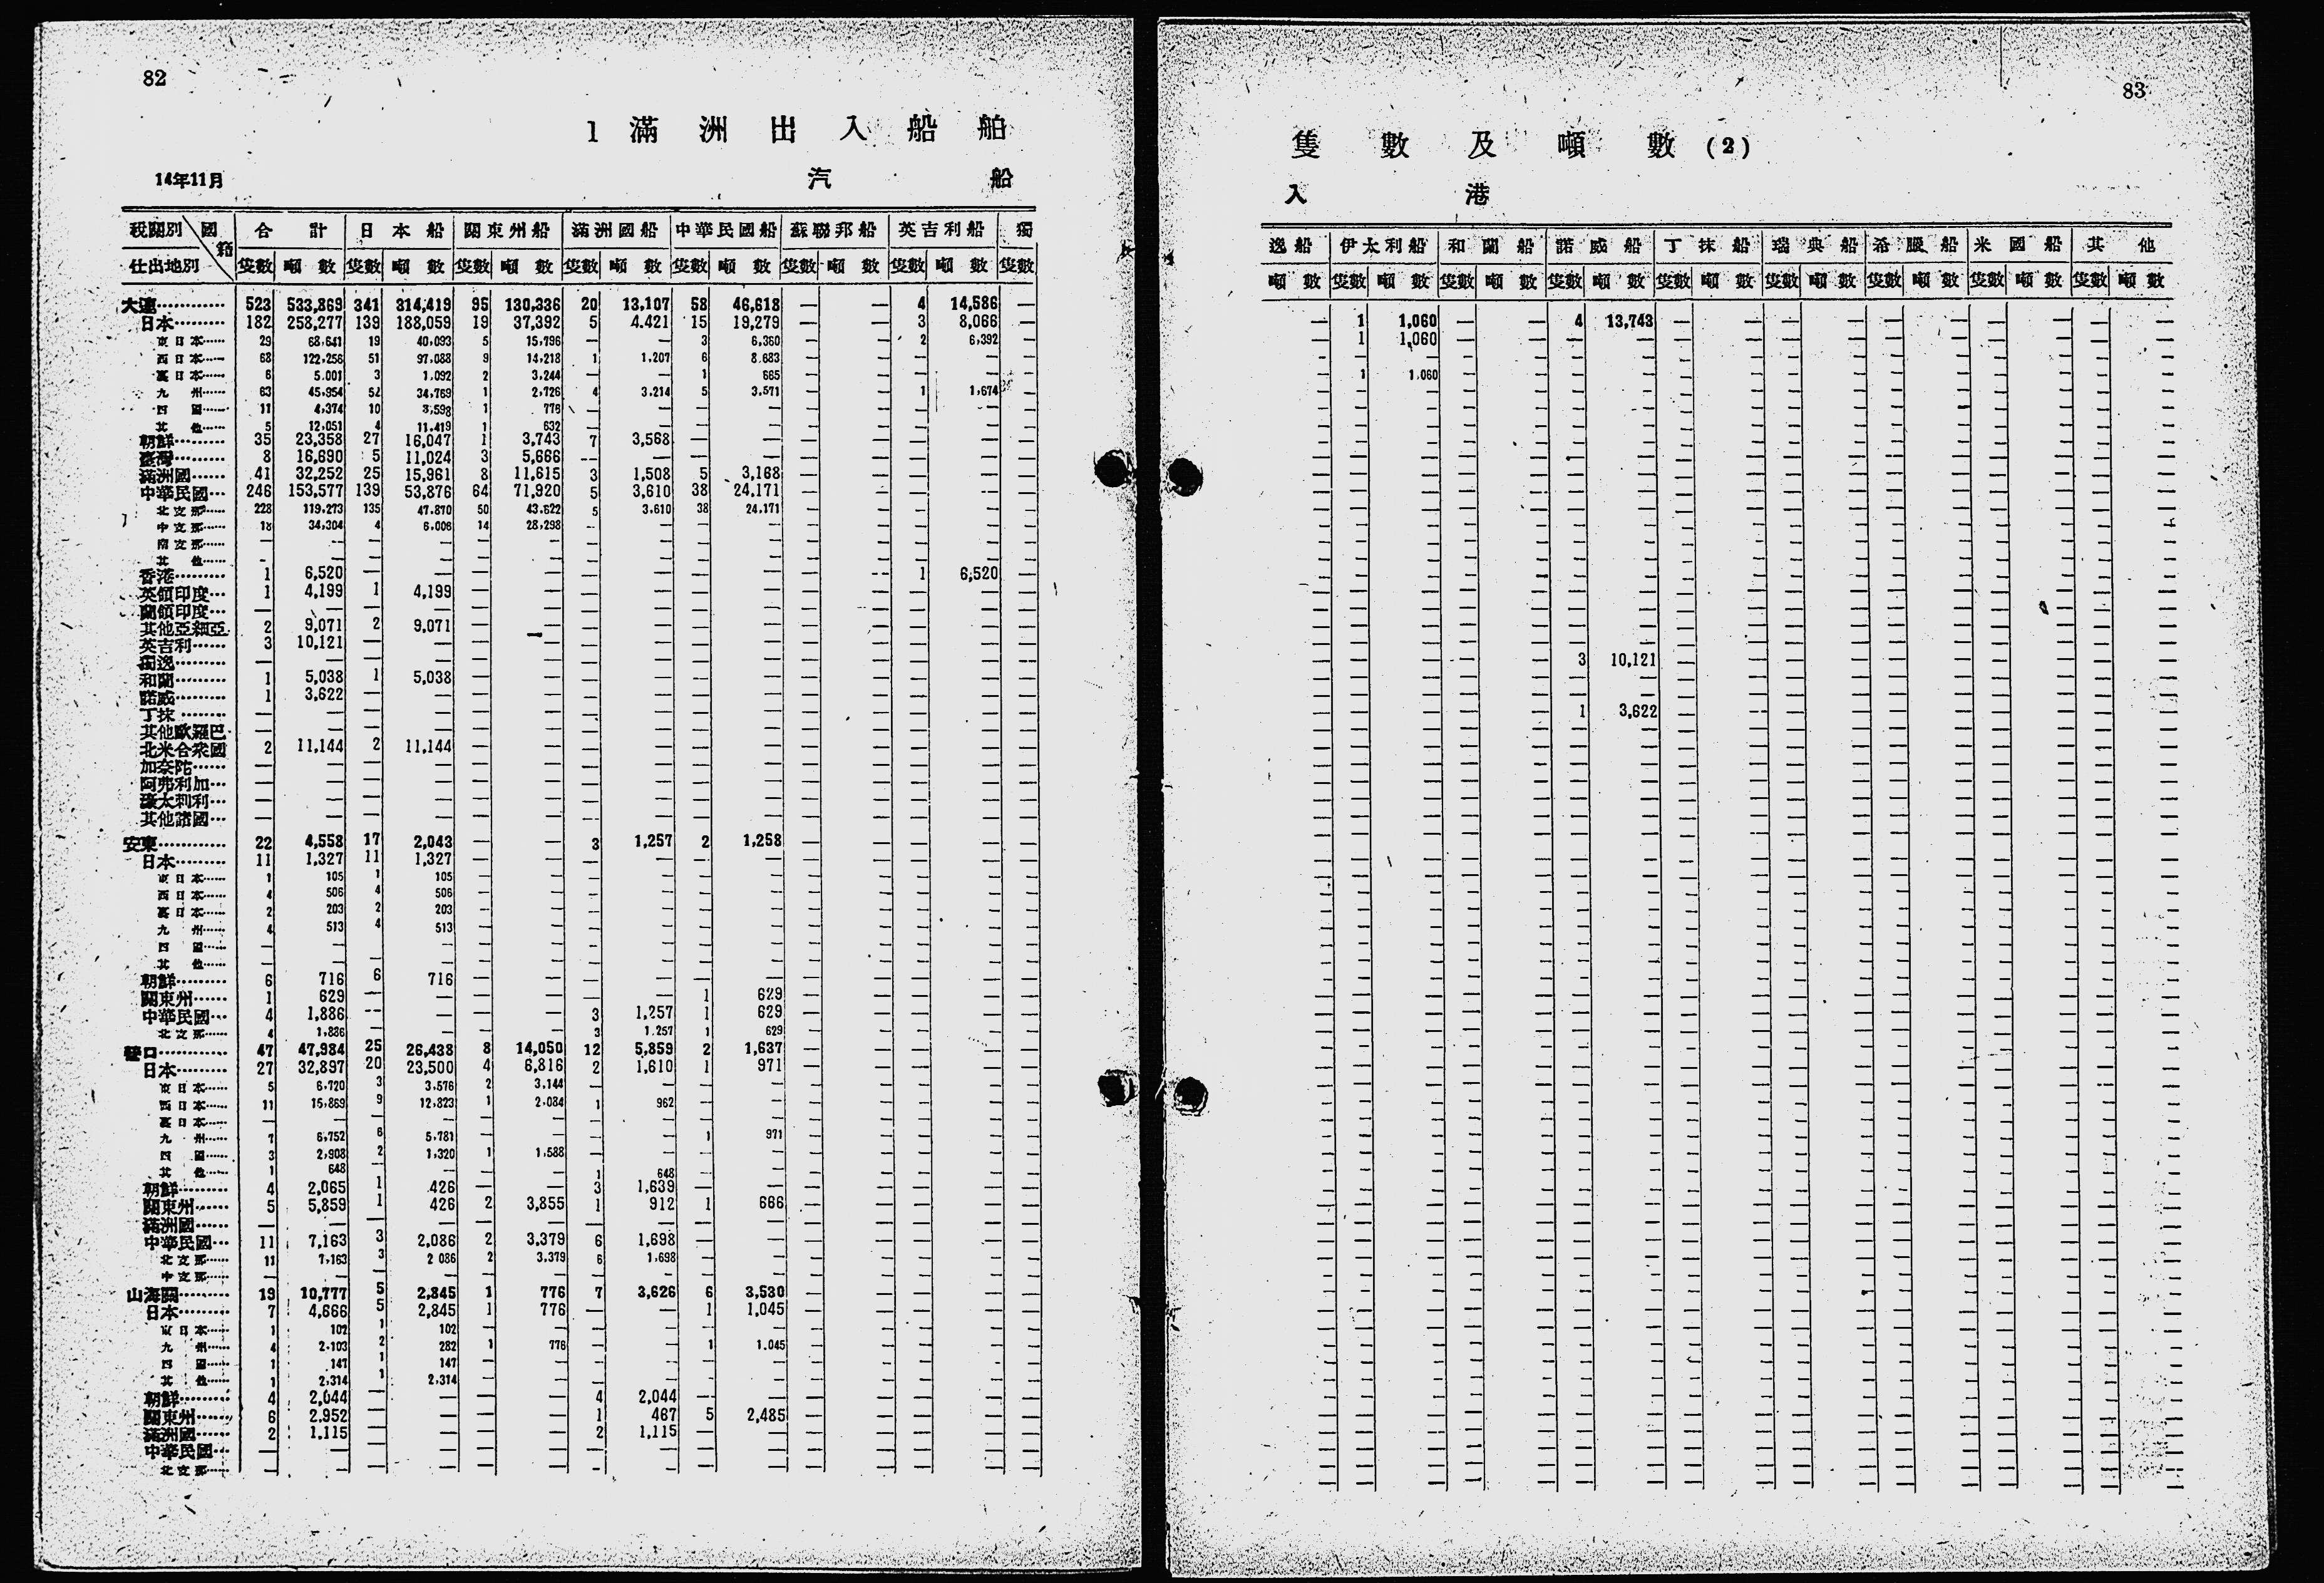 82
1 滿洲出入船舶
14年11月
汽船
稅關別 國籍 合計 日本船 關東州船 滿洲國船 中華民國船 蘇聯邦船 英吉利船 獨
仕出地別 隻數 噸數 隻數 噸數 隻數 噸數 隻數 噸數 隻數 噸數 隻數 噸數 隻數 噸數 隻數
大連………… 523 533,869 341 314,419 95 130,336 20 13,107 58 46,618 — — 4 14,586 —
日本……… 182 258,277 139 188,059 19 37,392 5 4,421 15 19,279 — — 3 8,066 —
東日本…… 29 68,641 19 40,093 5 15,796 — — 3 6,360 — — 2 6,392 —
西日本…… 68 122,256 51 97,088 9 14,218 1 1,207 6 8,683 — — — — —
裏日本…… 6 5,001 3 1,092 2 3,244 — — 1 665 — — — — —
九州…… 63 45,954 52 34,769 1 2,726 4 3,214 5 3,571 — — 1 1,674 —
四國…… 11 4,374 10 3,598 1 776 — — — — — — — — —
其他…… 5 12,051 4 11,419 1 632 — — — — — — — — —
朝鮮……… 35 23,358 27 16,047 1 3,743 7 3,568 — — — — — — —
臺灣……… 8 16,690 5 11,024 3 5,666 — — — — — — — — —
滿洲國…… 41 32,252 25 15,961 8 11,615 3 1,508 5 3,168 — — — — —
中華民國… 246 153,577 139 53,876 64 71,920 5 3,610 38 24,171 — — — — —
北支那…… 228 119,273 135 47,870 50 43,622 5 3,610 38 24,171 — — — — —
中支那…… 18 34,304 4 6,006 14 28,298 — — — — — — — — —
南支那…… — — — — — — — — — — — — — — —
其他…… — — — — — — — — — — — — — — —
香港……… 1 6,520 — — — — — — — — — — 1 6,520 —
英領印度… 1 4,199 1 4,199 — — — — — — — — — — —
蘭領印度… — — — — — — — — — — — — — — —
其他亞細亞 2 9,071 2 9,071 — — — — — — — — — — —
英吉利…… 3 10,121 — — — — — — — — — — — — —
獨逸……… — — — — — — — — — — — — — — —
和蘭……… 1 5,038 1 5,038 — — — — — — — — — — —
諾威……… 1 3,622 — — — — — — — — — — — — —
丁抹……… — — — — — — — — — — — — — — —
其他歐羅巴 — — — — — — — — — — — — — — —
北米合衆國 2 11,144 2 11,144 — — — — — — — — — — —
加奈陀…… — — — — — — — — — — — — — — —
阿弗利加… — — — — — — — — — — — — — — —
濠太剌利… — — — — — — — — — — — — — — —
其他諸國… — — — — — — — — — — — — — — —
安東………… 22 4,558 17 2,043 — — 3 1,257 2 1,258 — — — — —
日本……… 11 1,327 11 1,327 — — — — — — — — — — —
東日本…… 1 105 1 105 — — — — — — — — — — —
西日本…… 4 506 4 506 — — — — — — — — — — —
裏日本…… 2 203 2 203 — — — — — — — — — — —
九州…… 4 513 4 513 — — — — — — — — — — —
四國…… — — — — — — — — — — — — — — —
其他…… — — — — — — — — — — — — — — —
朝鮮……… 6 716 6 716 — — — — — — — — — — —
關東州…… 1 629 — — — — — — 1 629 — — — — —
中華民國… 4 1,886 — — — — 3 1,257 1 629 — — — — —
北支那…… 4 1,886 — — — — 3 1,257 1 629 — — — — —
營口………… 47 47,984 25 26,438 8 14,050 12 5,859 2 1,637 — — — — —
日本……… 27 32,897 20 23,500 4 6,816 2 1,610 1 971 — — — — —
東日本…… 5 6,720 3 3,576 2 3,144 — — — — — — — — —
西日本…… 11 15,869 9 12,823 1 2,084 1 962 — — — — — — —
裏日本…… — — — — — — — — — — — — — — —
九州…… 7 6,752 6 5,781 — — — — 1 971 — — — — —
四國…… 3 2,908 2 1,320 1 1,588 — — — — — — — — —
其他…… 1 648 — — — — 1 648 — — — — — — —
朝鮮……… 4 2,065 1 426 — — 3 1,639 — — — — — — —
關東州…… 5 5,859 1 426 2 3,855 1 912 1 666 — — — — —
滿洲國…… — — — — — — — — — — — — — — —
中華民國… 11 7,163 3 2,086 2 3,379 6 1,698 — — — — — — —
北支那…… 11 7,163 3 2 086 2 3,379 6 1,698 — — — — — — —
中支那…… — — — — — — — — — — — — — — —
山海關……… 19 10,777 5 2,845 1 776 7 3,626 6 3,530 — — — — —
日本……… 7 4,666 5 2,845 1 776 — — 1 1,045 — — — — —
東日本…… 1 102 1 102 — — — — — — — — — — —
九州…… 4 2,103 2 282 1 776 — — 1 1,045 — — — — —
四國…… 1 147 1 147 — — — — — — — — — — —
其他…… 1 2,314 1 2,314 — — — — — — — — — — —
朝鮮……… 4 2,044 — — — — 4 2,044 — — — — — — —
關東州…… 6 2,952 — — — — 1 467 5 2,485 — — — — —
滿洲國…… 2 1,115 — — — — 2 1,115 — — — — — — —
中華民國… — — — — — — — — — — — — — — —
北支那…… — — — — — — — — — — — — — — —
83
隻數及噸數(2)
入港
逸船 伊太利船 和蘭船 諾威船 丁抹船 瑞典船 希臘船 米國船 其他
噸數 隻數 噸數 隻數 噸數 隻數 噸數 隻數 噸數 隻數 噸數 隻數 噸數 隻數 噸數 隻數 噸數
— 1 1,060 — — 4 13,743 — — — — — — — — — —
— 1 1,060 — — — — — — — — — — — — — —
— 1 1,060 — — — — — — — — — — — — — —
— — — — — 3 10,121 — — — — — — — — — —
— — — — — 1 3,622 — — — — — — — — — —